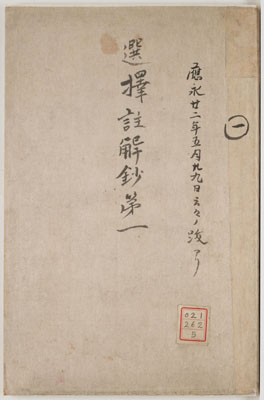 一
應永廿二年五月九日云々ノ跋アリ
選擇註解鈔第一
021
262
5